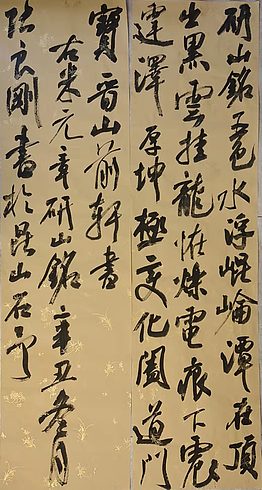 研山銘五色水浮崐崘潭在頂
出黑雲挂龍怪爍電痕下震
霆澤厚坤極變化闔道門
寶晉山前軒書
右米元章研山銘辛丑冬月
良剛書於昆山石